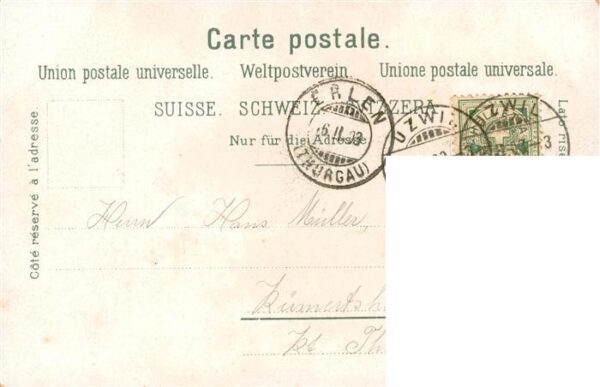 Carte postale.
Union postale universelle. Weltpostverein. Unione postale universale.
SUISSE. SCHWEIZ. SVIZZERA
Nur für die Adresse
Côté réservé à l'adresse.
ERLEN
(THURGAU)
UZWIL
UZWIL
3
Herrn Hans Müller,
Kt Th